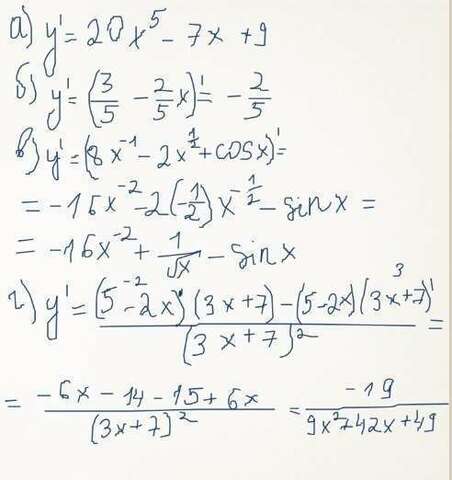 а) y' = 20x⁵ - 7x + 9
б) y' = (3/5 - 2/5 x)' = - 2/5
в) y' = (8x⁻¹ - 2x^(1/2) + cosx)' =
= -16x⁻² - 2(-1/2)x^(-1/2) - sin x =
= -16x⁻² + 1/√x - sin x
г) y' = ((5 - 2x)' (3x+7) - (5-2x)(3x+7)')/(3x+7)² =
-2
3
= (-6x - 14 - 15 + 6x)/(3x+7)² = -19/(9x²+42x+49)